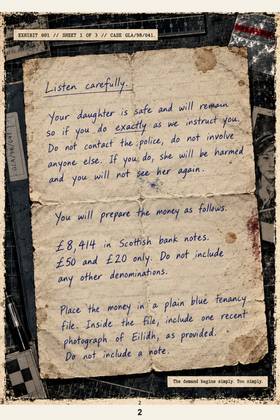 EXHIBIT 001 // SHEET 1 OF 3 // CASE GLA/98/041
Listen carefully.
Your daughter is safe and will remain
so if you do exactly as we instruct you.
Do not contact the police, do not involve
anyone else. If you do, she will be harmed
and you will not see her again.
You will prepare the money as follows.
£8,414 in Scottish bank notes.
£50 and £20 only. Do not include
any other denominations.
Place the money in a plain blue tenancy
file. Inside the file, include one recent
photograph of Eilidh, as provided.
Do not include a note.
The demand begins simply. Too simply.
2
2